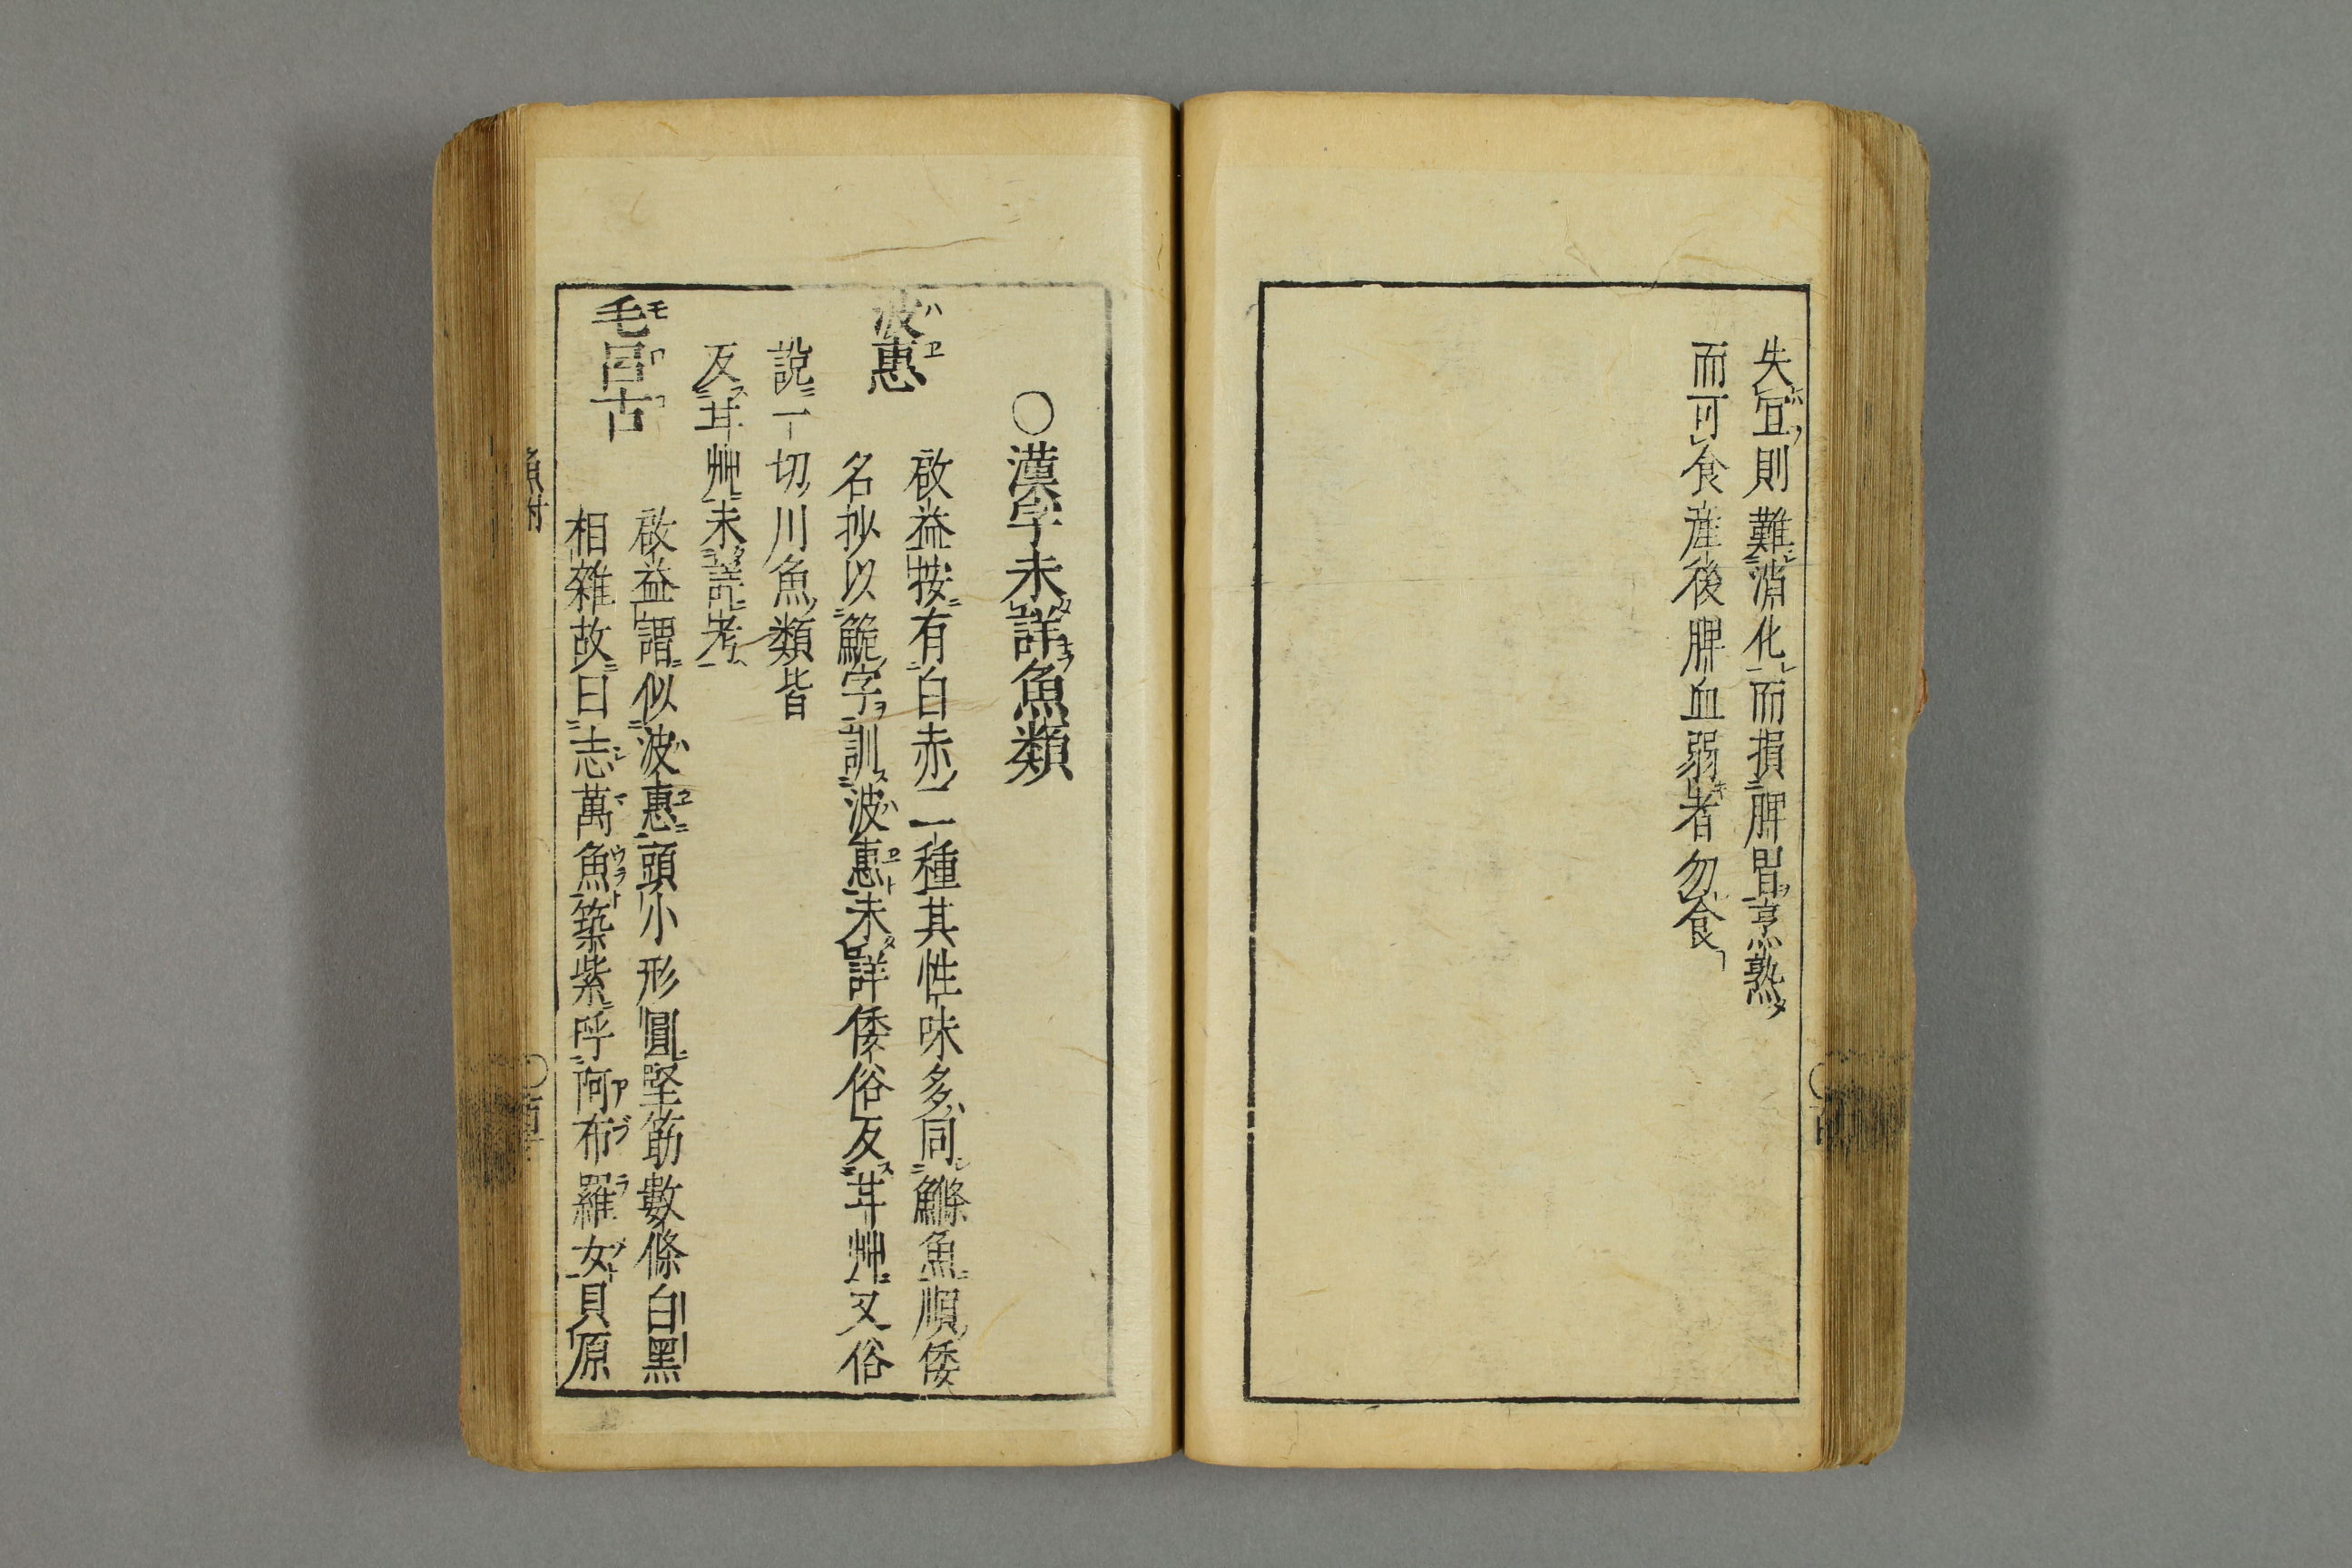 失宜則難消化而損脾胃烹熟
而可食産後脾血弱者勿食
〇漢字未詳魚類
波惠
啟益按有白赤二種其性味多同鰷魚順倭
名抄以鮠字訓波惠未詳倭俗反芼艸又俗
說一切川魚類皆
反芼艸未詳考
毛呂古
啟益謂似波惠頭小形圓堅筋數條白黑
相雜故曰志萬魚築紫呼阿布羅女貝原
魚附